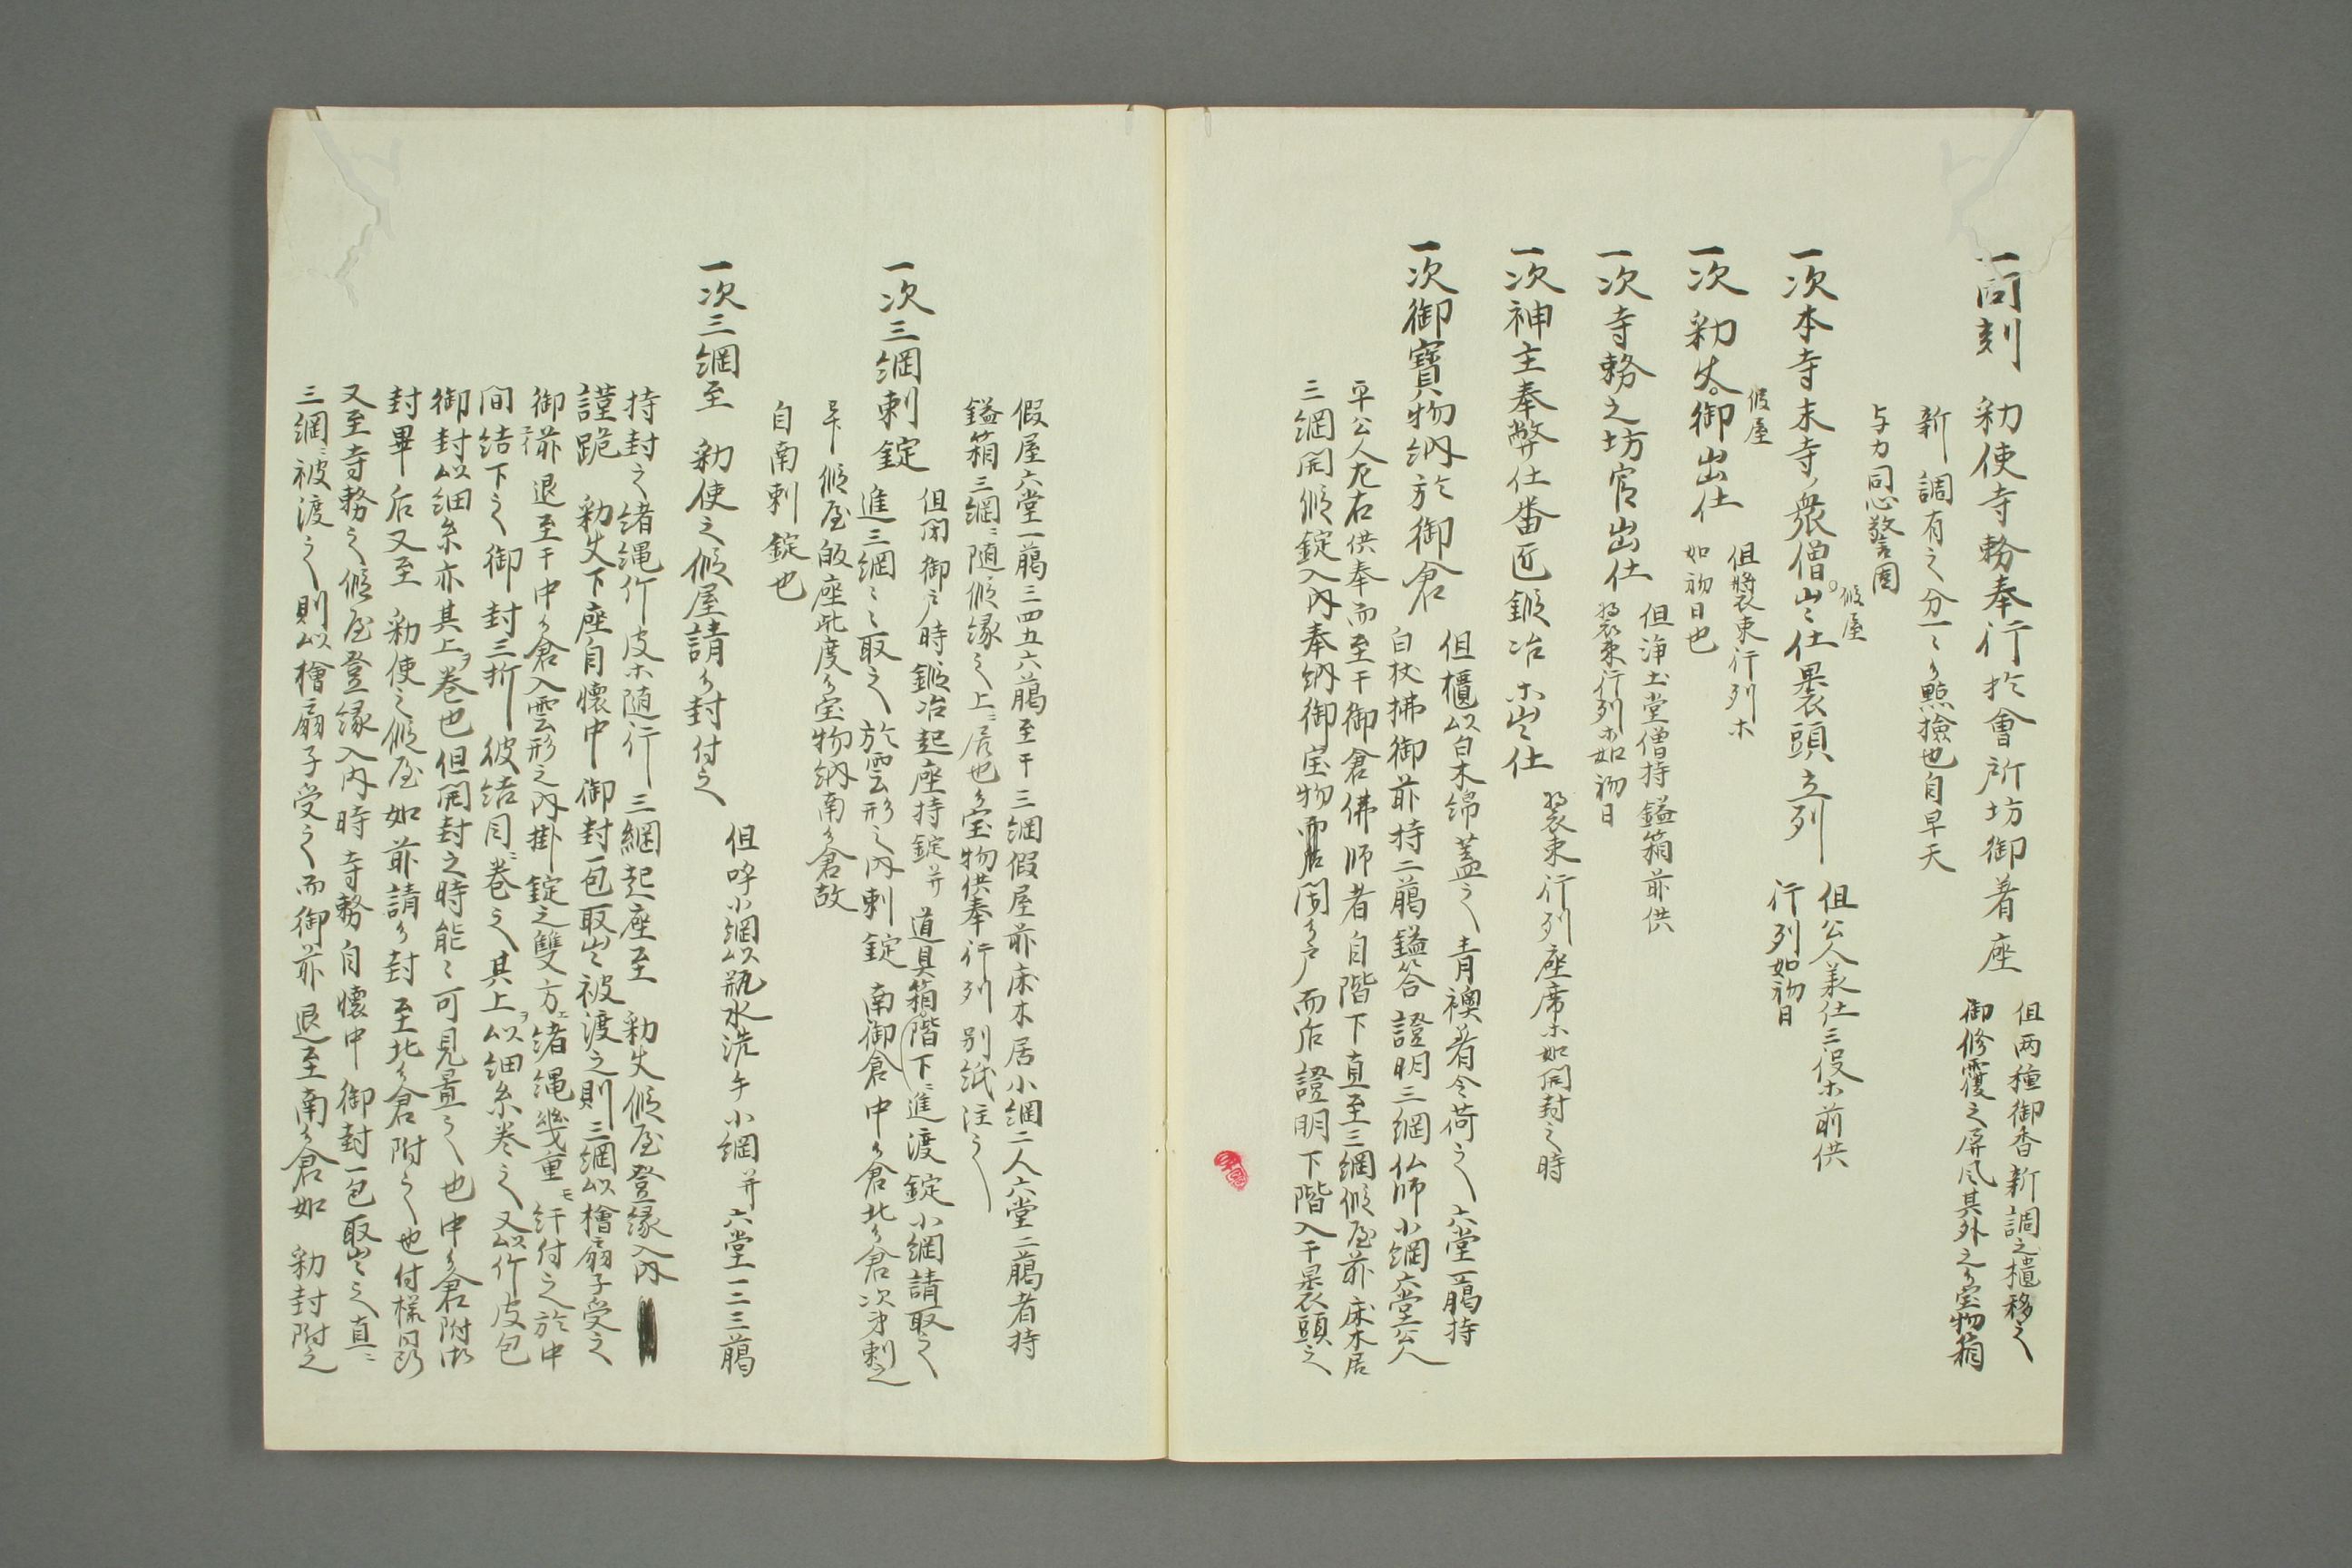 一同刻 勅使寺務奉行於會所坊御着座
但両種御香新調之櫃移之
御修覆之屏風其外之御宝物箱
新調有之分一々御點撿也自早天
与力同心警固
一次本寺末寺ノ衆僧出仕裹頭立列
假屋
但公人兼仕三役ホ前供
行列如初日
一次 勅使御出仕
假屋
但裝束行列ホ
如初日也
一次寺務之坊官出仕
但浄土堂僧持鎰箱前供
裝束行列ホ如初日
一次神主奉幣仕番匠鍛冶ホ出仕
裝束行列座席ホ如開封之時
一次御寶物納於御倉
但櫃以白木綿蓋之青襖着令荷之六堂一﨟持
白杖拂御前持二﨟鎰荅證明三綱仏師小綱六堂公人
平公人左右供奉而至于御倉佛師者自階下直至三綱假屋前床木居
三綱開假錠入内奉納御宝物而閇御戸而后證明下階入于裹頭之
假屋六堂一﨟三四五六﨟至于三綱假屋前床木居小綱二人六堂二﨟者持
鎰箱三綱ニ随假縁之上ニ居也御宝物供奉行列別紙注之
一次三綱刺錠
但閇御之時鍛冶起座持錠并道具箱階下ニ進渡錠小綱請取之
進三綱々々取之於雲形之内刺錠 南御倉中御倉北御倉次第刺之
畢假屋皈座此度御宝物納南御倉故
自南刺錠也
一次三綱至 勅使之假屋請御封付之
但呼小綱以瓶水洗手小綱并六堂一二三﨟
持封之緒縄竹皮ホ随行三綱起座至 勅使假屋登縁入内
謹跪 勅使下座自懐中御封一包取出被渡之則三綱以檜扇子受之
御前退至于中御倉入雲形之内掛錠之雙方エ緒縄幾重モ纤付之於中
間結下之御封三折彼結目ニ巻之其上ヲ以細糸巻之又以竹皮包
御封以細糸亦其上ヲ巻也但開封之時能々可見置之也中御倉附御
封畢后又至 勅使之假屋如前請御封至北御倉附之也付様同前
又至寺務之假屋登縁入内時寺務自懐中御封一包取出之直ニ
三綱ニ被渡之則以檜扇子受之而御前退至南御倉如 勅封附之